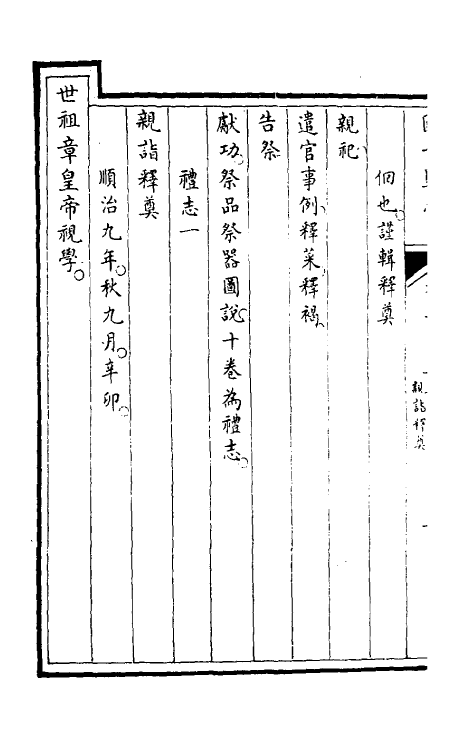 佪也謹輯釋奠
親祀
遣官事例釋菜釋褐
告祭
獻功祭品祭器圖說十卷為禮志
禮志一
親詣釋奠
順治九年秋九月辛卯
世祖章皇帝視學
親詣釋奠